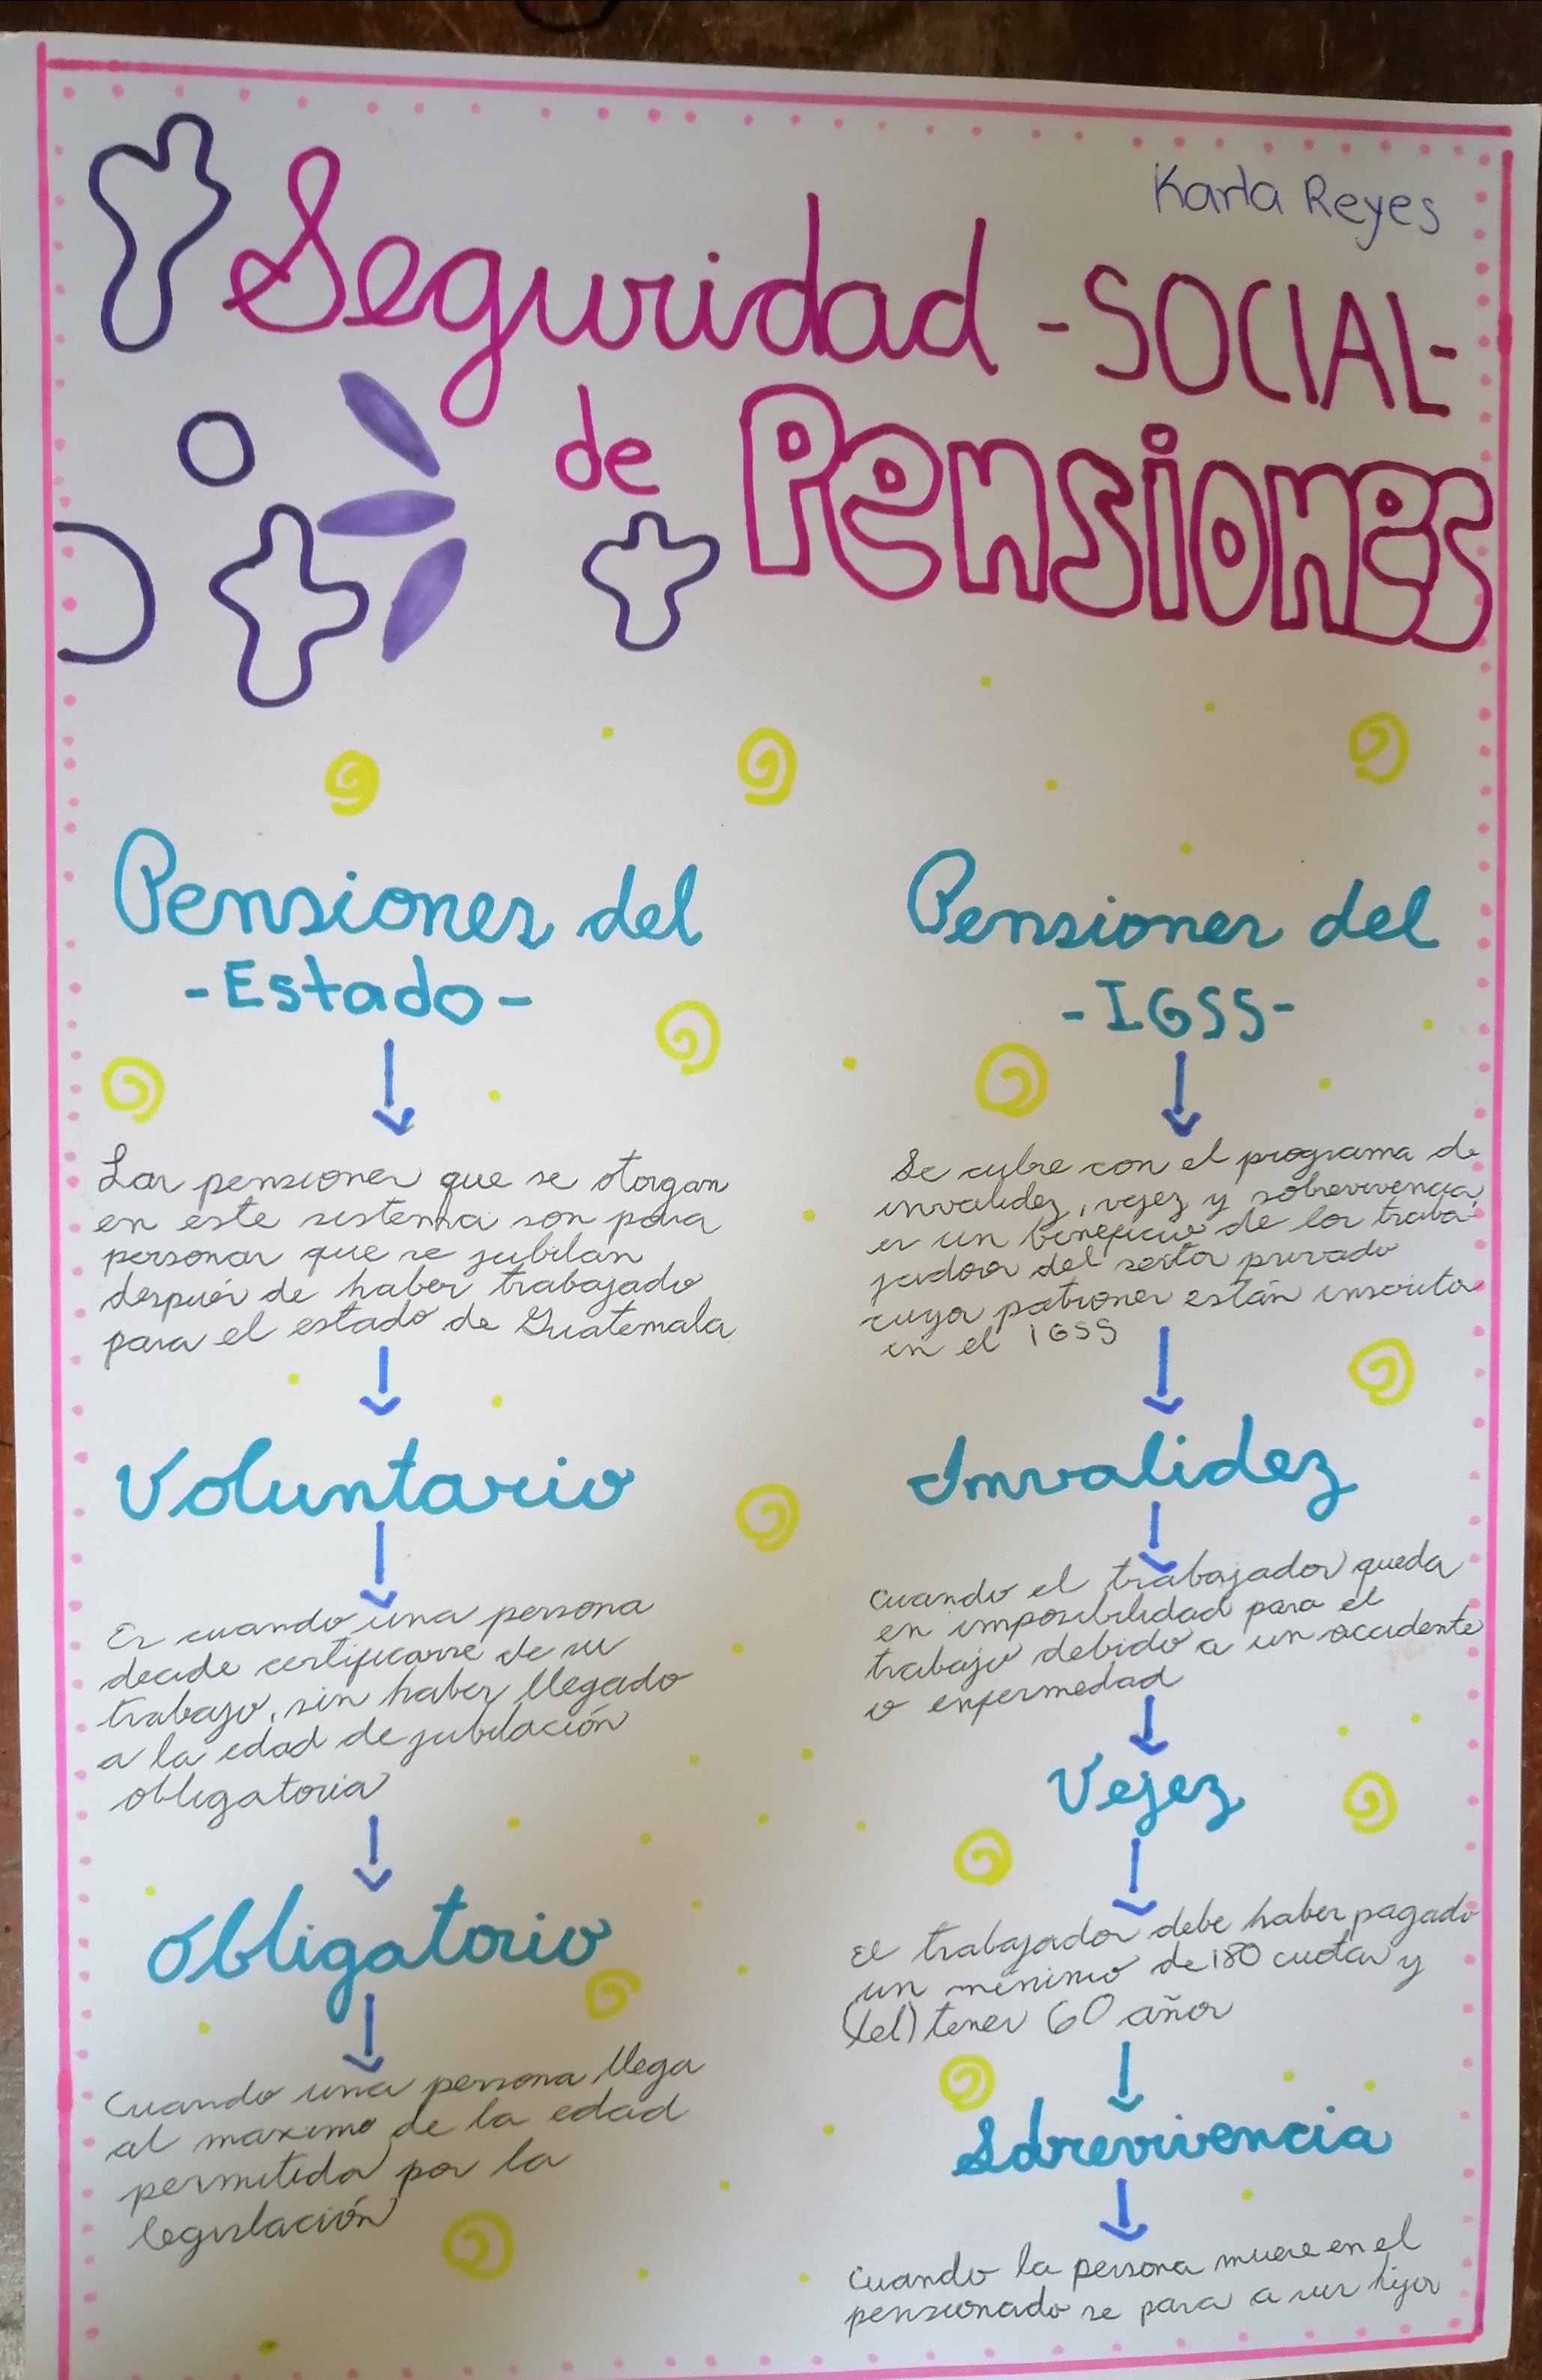 Karla Reyes
Seguridad -SOCIAL-
de Pensiones
Pensiones del
-Estado-
Las pensiones que se otorgan
en este sistema son para
personas que se jubilan
después de haber trabajado
para el estado de Guatemala
Voluntario
Es cuando una persona
decide certificarse de su
trabajo, sin haber llegado
a la edad de jubilación
obligatoria
Obligatorio
Cuando una persona llega
al maximo de la edad
permitida por la
legislación
Pensiones del
-IGSS-
Se cubre con el programa de
invalidez, vejez y sobrevivencia,
es un beneficio de los traba-
jadores del sector privado
cuyos patrones están inscritos
en el IGSS
Invalidez
Cuando el trabajador queda
en imposibilidad para el
trabajo debido a un accidente
o enfermedad
Vejez
El trabajador debe haber pagado
un mínimo de 180 cuotas y
(tel) tener 60 años
Sobrevivencia
Cuando la persona muere en el
pensionado se para a sus hijos